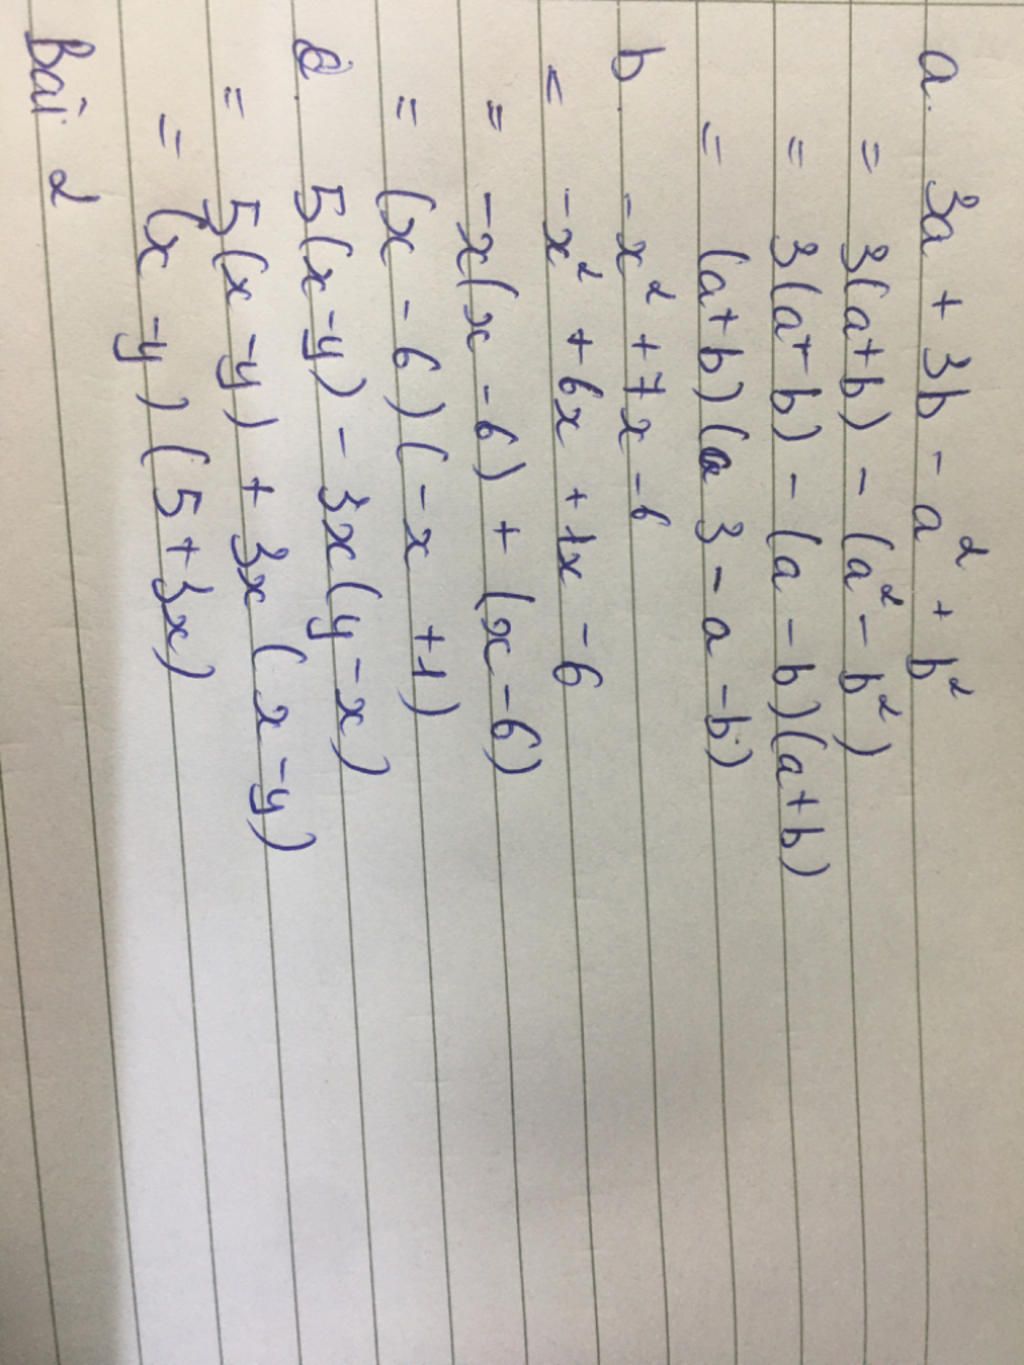 a. 3a + 3b - a² + b²
= 3(a+b) - (a² - b²)
= 3(a+b) - (a - b)(a+b)
= (a+b)(3 - a - b)
b. -x² + 7x - 6
= -x² + 6x + 1x - 6
= -x(x - 6) + (x - 6)
= (x - 6)(-x + 1)
5(x - y) - 3x(y - x)
= 5(x - y) + 3x(x - y)
= (x - y)(5 + 3x)
Bài 2